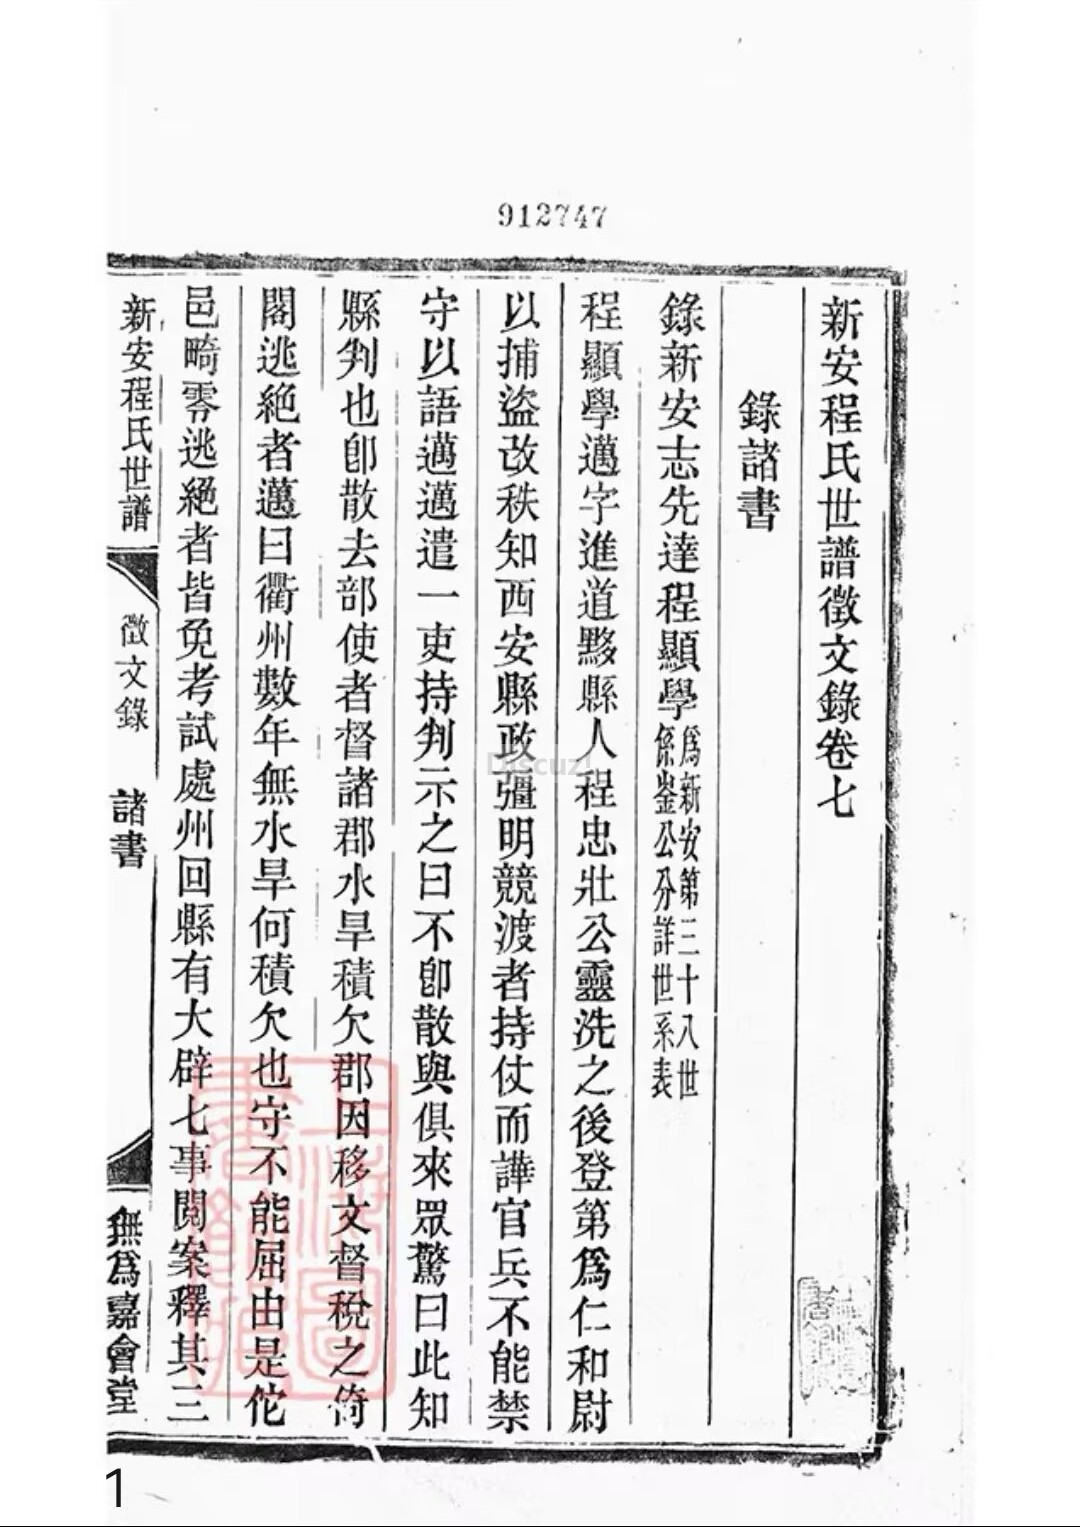 912747
新安程氏世譜徵文錄卷七
錄諸書
錄新安志先達程顯學爲新安第三十八世
係崟公分詳世系表
程顯學邁字進道黟縣人程忠壯公靈洗之後登第爲仁和尉
以捕盜改秩知西安縣政彊明競渡者持仗而譁官兵不能禁
守以語邁邁遣一吏持判示之曰不卽散與俱來眾驚曰此知
縣判也卽散去部使者督諸郡水旱積欠郡因移文督稅之倚
閣逃絕者邁曰衢州數年無水旱何積欠也守不能屈由是佗
邑畸零逃絕者皆免考試處州回縣有大辟七事閱案釋其三
新安程氏世譜
徵文錄
諸書
無爲嘉會堂
上海圖書館藏
Discuz!
1